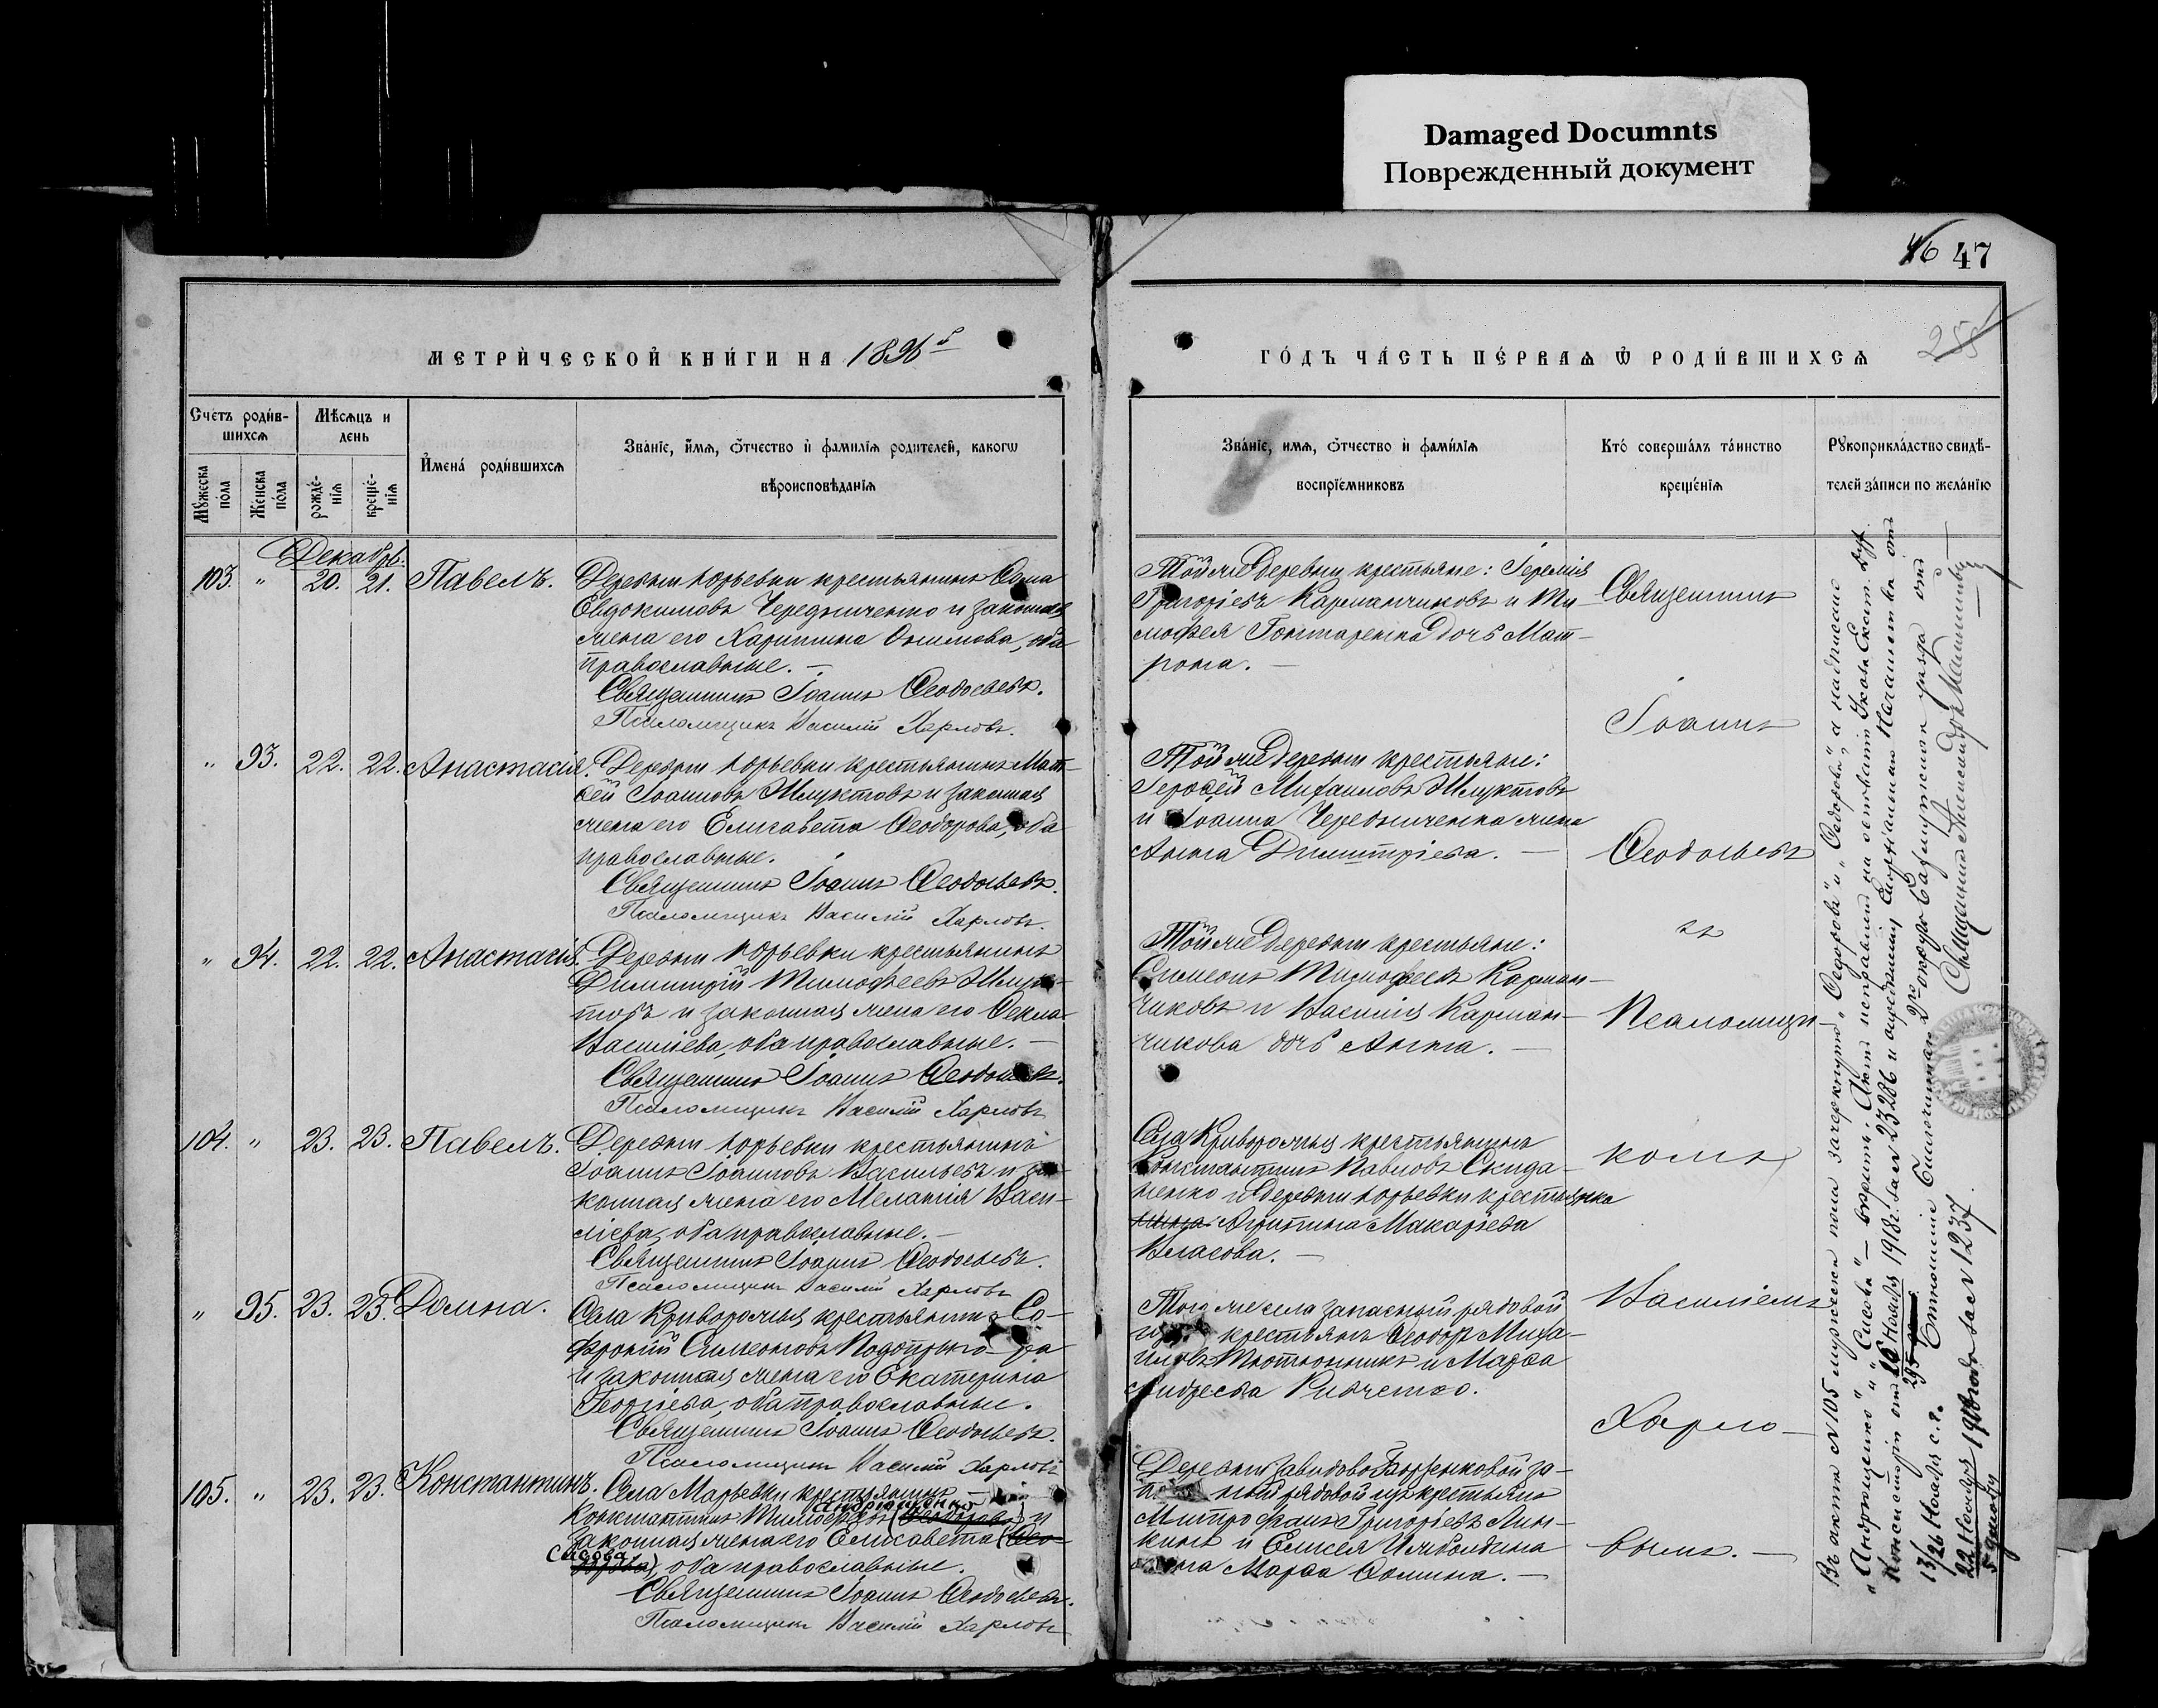 Damaged Documnts
Поврежденный документ
46 47
255
МЕТРИ́ЧЕСКОЙ КНИ́ГИ НА 1896й
ГО́ДЪ ЧА́СТЬ ПЕ́РВАѦ Ѿ РОДИ́ВШИХСѦ
Счетъ роди́в-
шихсѧ
Мѣсѧцъ и
день
Мꙋжеска
по́ла
Женска
по́ла
рожде́-
нїѧ
креще́-
нїѧ
Имена́ роди́вшихсѧ
Зва́нїе, и́мѧ, ѻ́тчество и҆ фами́лїѧ роди́телей, какогѡ
вѣроисповѣ́данїѧ
Зва́нїе, имѧ, ѻ́тчество и҆ фами́лїѧ
воспрїе́мниковъ
Кто̀ соверша́лъ та́инство
креще́нїѧ
Рꙋкоприкла́дство свидѣ́-
телей за́писи по жела́нїю
Декабрь.
103. " 20. 21. Павелъ.
Деревни Юрьевки крестьянинъ Ѳома
Евдокимовъ Чередниченко и законная
жена его Харитина Онимова, оба
православные. —
Священникъ Іоаннъ Ѳеодосьевъ.
Псаломщикъ Василій Харловъ.
Той же деревни крестьяне: Іеремія
Григорьевъ Карманчиковъ и Ти-
мофея Гонтаренка дочь Мат-
рона. —
" 93. 22. 22. Анастасія.
Деревни Юрьевки крестьянинъ Мат-
ѳей Іоанновъ Жлуктовъ и законная
жена его Елисавета Ѳеодорова, оба
православные.
Священникъ Іоаннъ Ѳеодосьевъ.
Псаломщикъ Василій Харловъ.
Той же деревни крестьяне:
Іероѳей Михаиловъ Жлуктовъ
и Іоанна Чередниченка жена
Анна Димитріева. —
" 94. 22. 22. Анастасія.
Деревни Юрьевки крестьянинъ
Димитрій Тимофеевъ Жлук-
товъ и законная жена его Ѳекла
Васильева, оба православные. —
Священникъ Іоаннъ Ѳеодосьевъ.
Псаломщикъ Василій Харловъ
Той же деревни крестьяне:
Симеонъ Тимофеевъ Карман-
чиковъ и Василія Карман-
чикова дочь Анна. —
104. " 23. 23. Павелъ.
Деревни Юрьевки крестьянинъ
Іоаннъ Іоанновъ Васильевъ и за-
конная жена его Меланія Васи-
ліева, оба православные. —
Священникъ Іоаннъ Ѳеодосьевъ.
Псаломщикъ Василій Харловъ
Села Криворожья крестьянинъ
Константинъ Павловъ Скида-
ненко и деревни Юрьевки крестьянка
Агрипина Макаріева
Власова. —
" 95. 23. 23. Домна.
Села Криворожья крестьянинъ Со-
фроній Симеоновъ Подопригора
и законная жена его Екатерина
Георгіева, оба православные.
Священникъ Іоаннъ Ѳеодосьевъ.
Псаломщикъ Василій Харловъ
Того же села запасный рядовой
изъ крестьянъ Ѳеодоръ Миха-
иловъ Тютюнникъ и Марѳа
Андреева Рибченко.
105. " 23. 23. Константинъ.
Села Марьевки крестьянинъ
Андрющенко
Константинъ Тимофеевъ (Ѳеодоровъ) и
законная жена его Елисавета (Ѳео-
Сисова
дорова), оба православные.
Священникъ Іоаннъ Ѳеодосьевъ.
Псаломщикъ Василій Харловъ
Деревни Завидово-Борзенковой за-
пасный рядовой изъ крестьянъ
Митрофанъ Григорьевъ Лин-
никъ и Елисея
жена Марѳа Ѳомина. —
Священникъ
Іоаннъ
Ѳеодосьевъ
съ
Псаломщи-
комъ
Василіемъ
Харло-
вымъ. —
Въ актѣ № 105 мужеска пола зачеркнуто „Ѳедоровъ" и „Ѳедорова", а надписано
„Андрющенко" и „Сисова" — вѣрить. Актъ исправленъ на основаніи Указа Екат. Дух.
Консисторіи отъ 16 Ноября 1918 г. за № 23286
13/26 Ноября с. г.
22 Ноября 1918 года за № 1237.
Священникъ Александръ